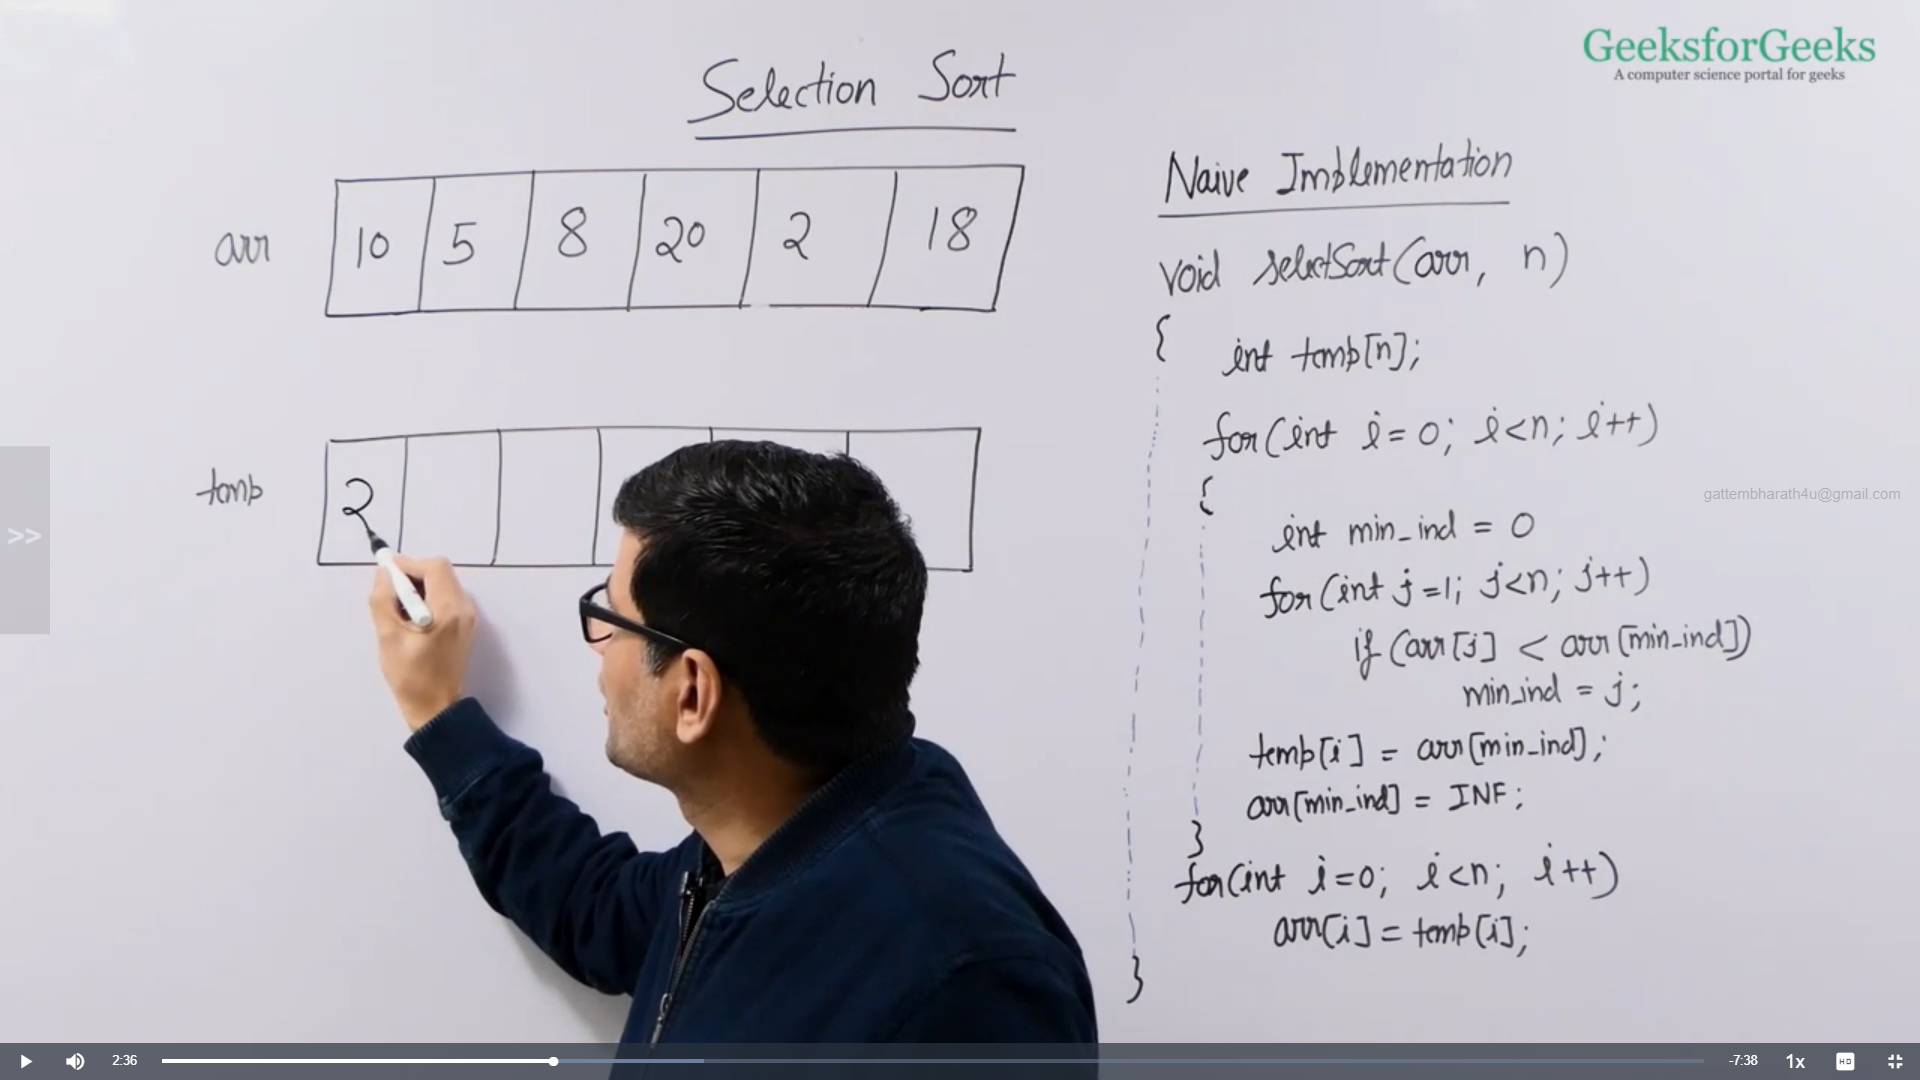 GeeksforGeeks
A computer science portal for geeks
Selection Sort
arr 10 5 8 20 2 18
temp 2
Naive Implementation
void selectSort(arr, n)
{
int temp[n];
for(int i=0; i<n; i++)
{
int min_ind = 0
for(int j=1; j<n; j++)
if (arr[j] < arr[min_ind])
min_ind = j;
temp[i] = arr[min_ind];
arr[min_ind] = INF;
}
for(int i=0; i<n; i++)
arr[i] = temp[i];
}
gattembharath4u@gmail.com
>>
2:36
-7:38
1x
HD